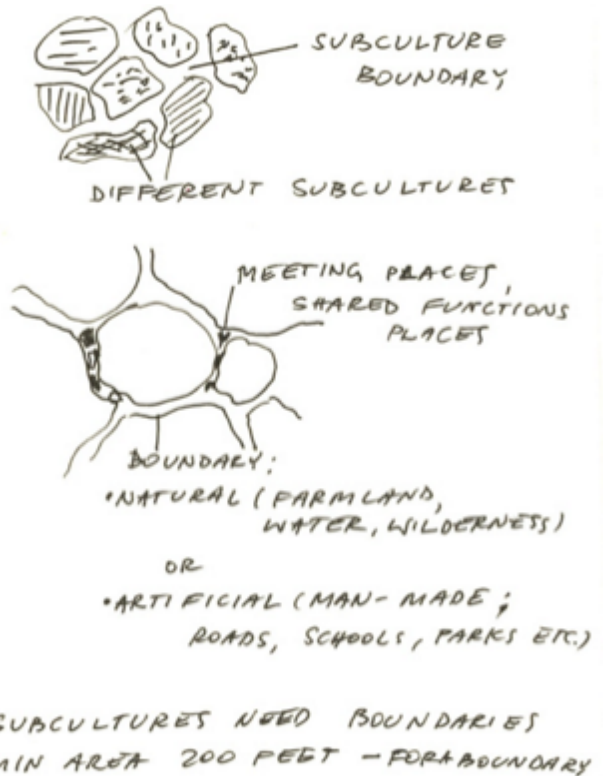 SUBCULTURE
BOUNDARY
DIFFERENT SUBCULTURES
MEETING PLACES,
SHARED FUNCTIONS
PLACES
BOUNDARY:
•NATURAL (FARMLAND,
WATER, WILDERNESS)
OR
•ARTIFICIAL (MAN-MADE;
ROADS, SCHOOLS, PARKS ETC.)
SUBCULTURES NEED BOUNDARIES
MIN AREA 200 FEET - FOR A BOUNDARY